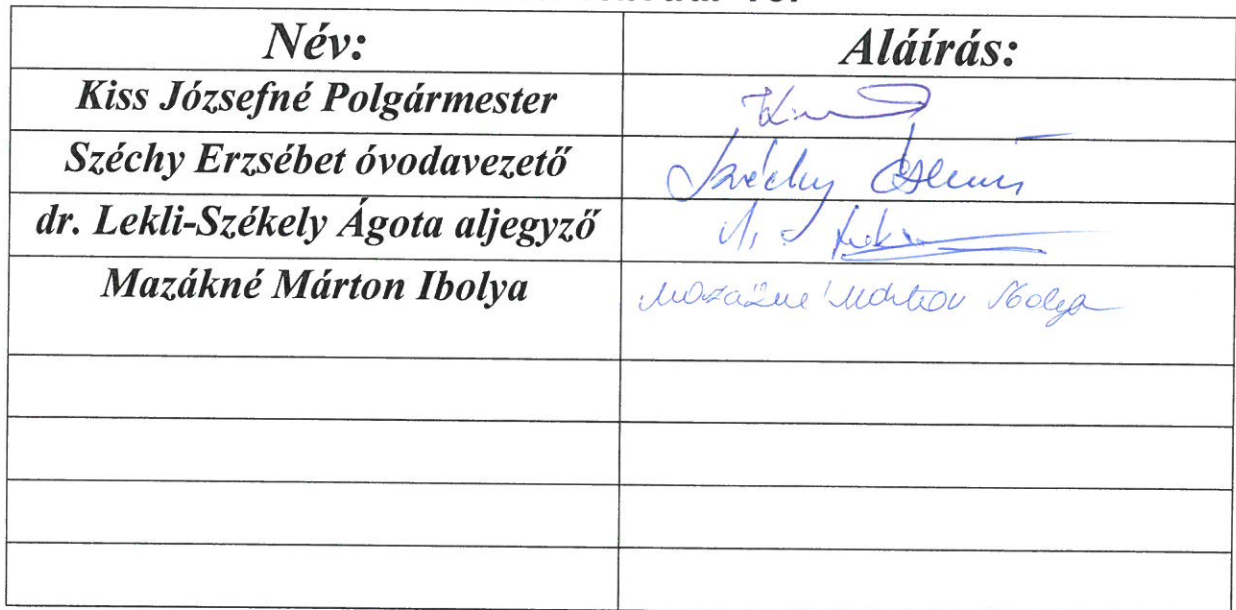 Név: Aláírás:
Kiss Józsefné Polgármester
Széchy Erzsébet óvodavezető Széchy
dr. Lekli-Székely Ágota aljegyző
Mazákné Márton Ibolya Mazákné Márton Ibolya